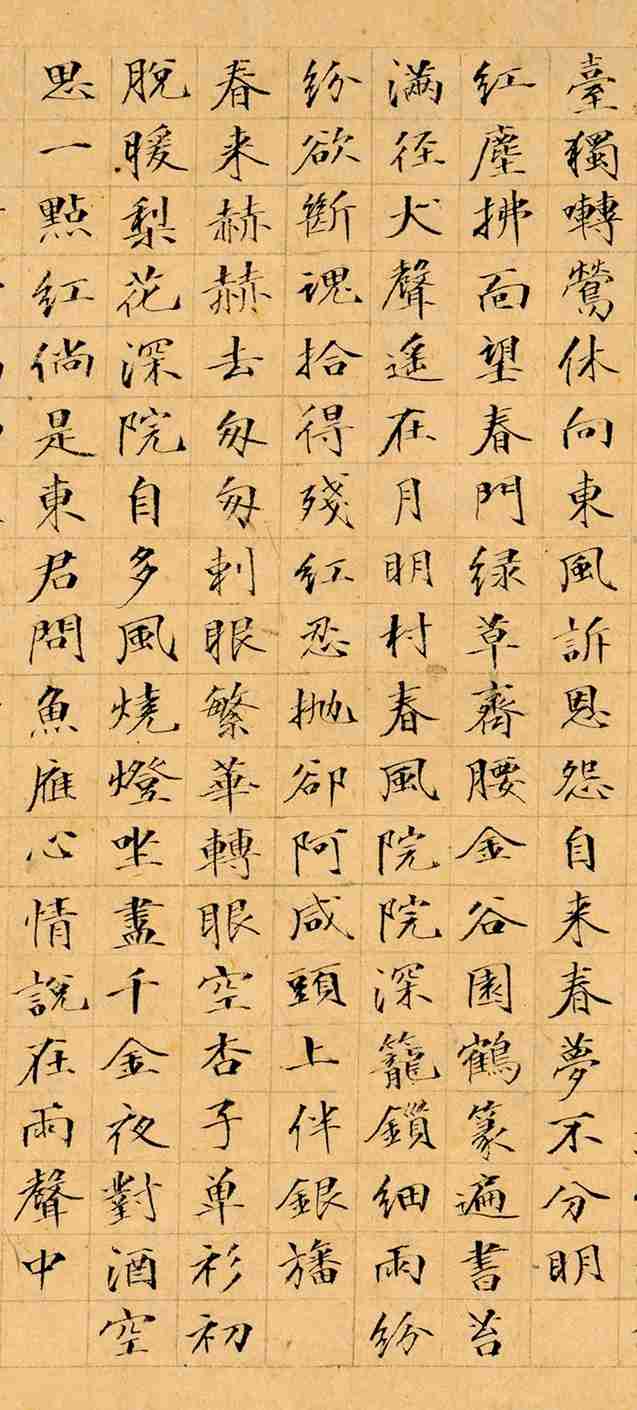 臺獨囀鶯休向東風訴恩怨自来春夢不分明
紅塵拂面望春門绿草齊腰金谷園鶴篆遍書苔
滿徑犬聲遙在月明村春風院院深籠鎖細雨紛
紛欲斷魂拾得殘紅忍抛卻阿咸頭上伴銀旛
春来赫赫去匆匆刺眼繁華轉眼空杏子单衫初
脫暖梨花深院自多風燒燈坐盡千金夜對酒空
思一點紅倘是東君問魚雁心情說在雨聲中